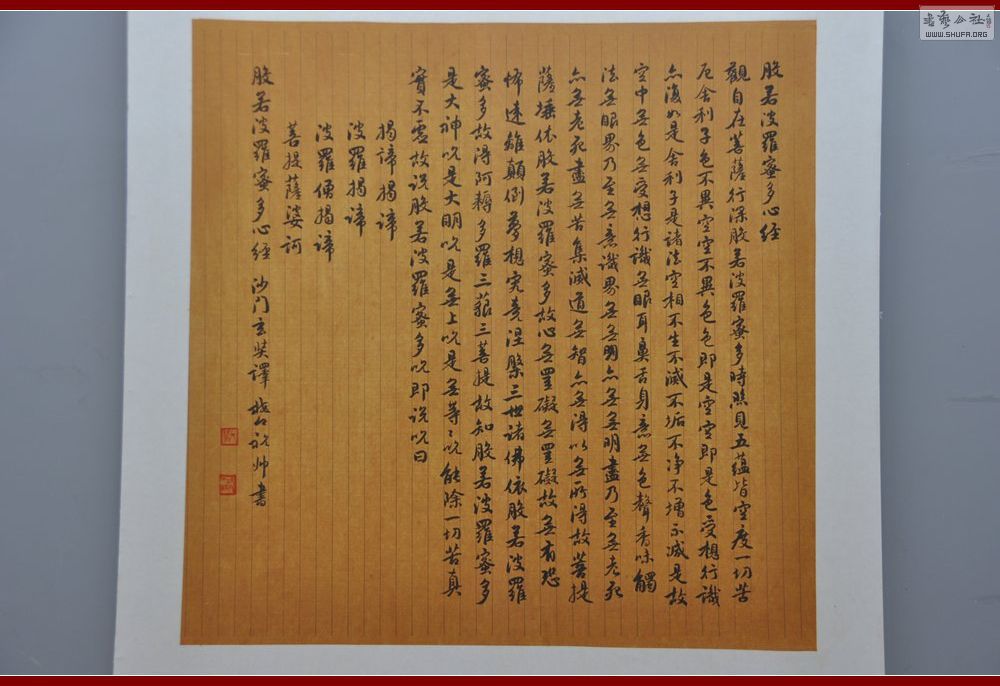 般若波羅蜜多心經
觀自在菩薩行深般若波羅蜜多時照見五蘊皆空度一切苦
厄舍利子色不異空空不異色色即是空空即是色受想行識
亦復如是舍利子是諸法空相不生不滅不垢不净不增不減是故
空中無色無受想行識無眼耳鼻舌身意無色聲香味觸
法無眼界乃至無意識界無無明亦無無明盡乃至無老死
亦無老死盡無苦集滅道無智亦無得以無所得故菩提
薩埵依般若波羅蜜多故心無罣礙無罣礙故無有恐
怖遠離顛倒夢想究竟涅槃三世諸佛依般若波羅
蜜多故得阿耨多羅三藐三菩提故知般若波羅蜜多
是大神咒是大明咒是無上咒是無等々咒能除一切苦真
實不虛故說般若波羅蜜多咒即說咒曰
揭諦揭諦
波羅揭諦
波羅僧揭諦
菩提薩婆訶
般若波羅蜜多心經 沙門玄奘譯 帅書
書藝公社
WWW.SHUFA.ORG